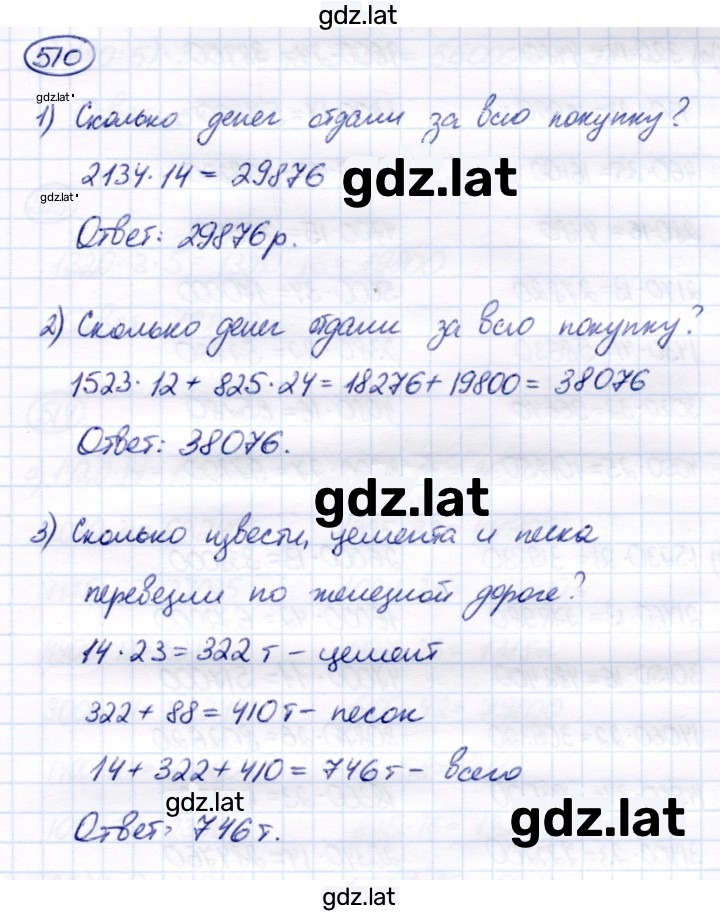 gdz.lat
510
gdz.lat
1) Сколько денег отдали за всю покупку?
2134·14 = 29876
gdz.lat
gdz.lat
Ответ: 29876р.
2) Сколько денег отдали за всю покупку?
1523·12 + 825·24 = 18276 + 19800 = 38076
Ответ: 38076.
gdz.lat
3) Сколько извести, цемента и песка
перевезли по железной дороге?
14·23 = 322 т – цемент
322 + 88 = 410 т – песок
14 + 322 + 410 = 746 т – всего
gdz.lat
Ответ: 746 т.
gdz.lat
gdz.lat